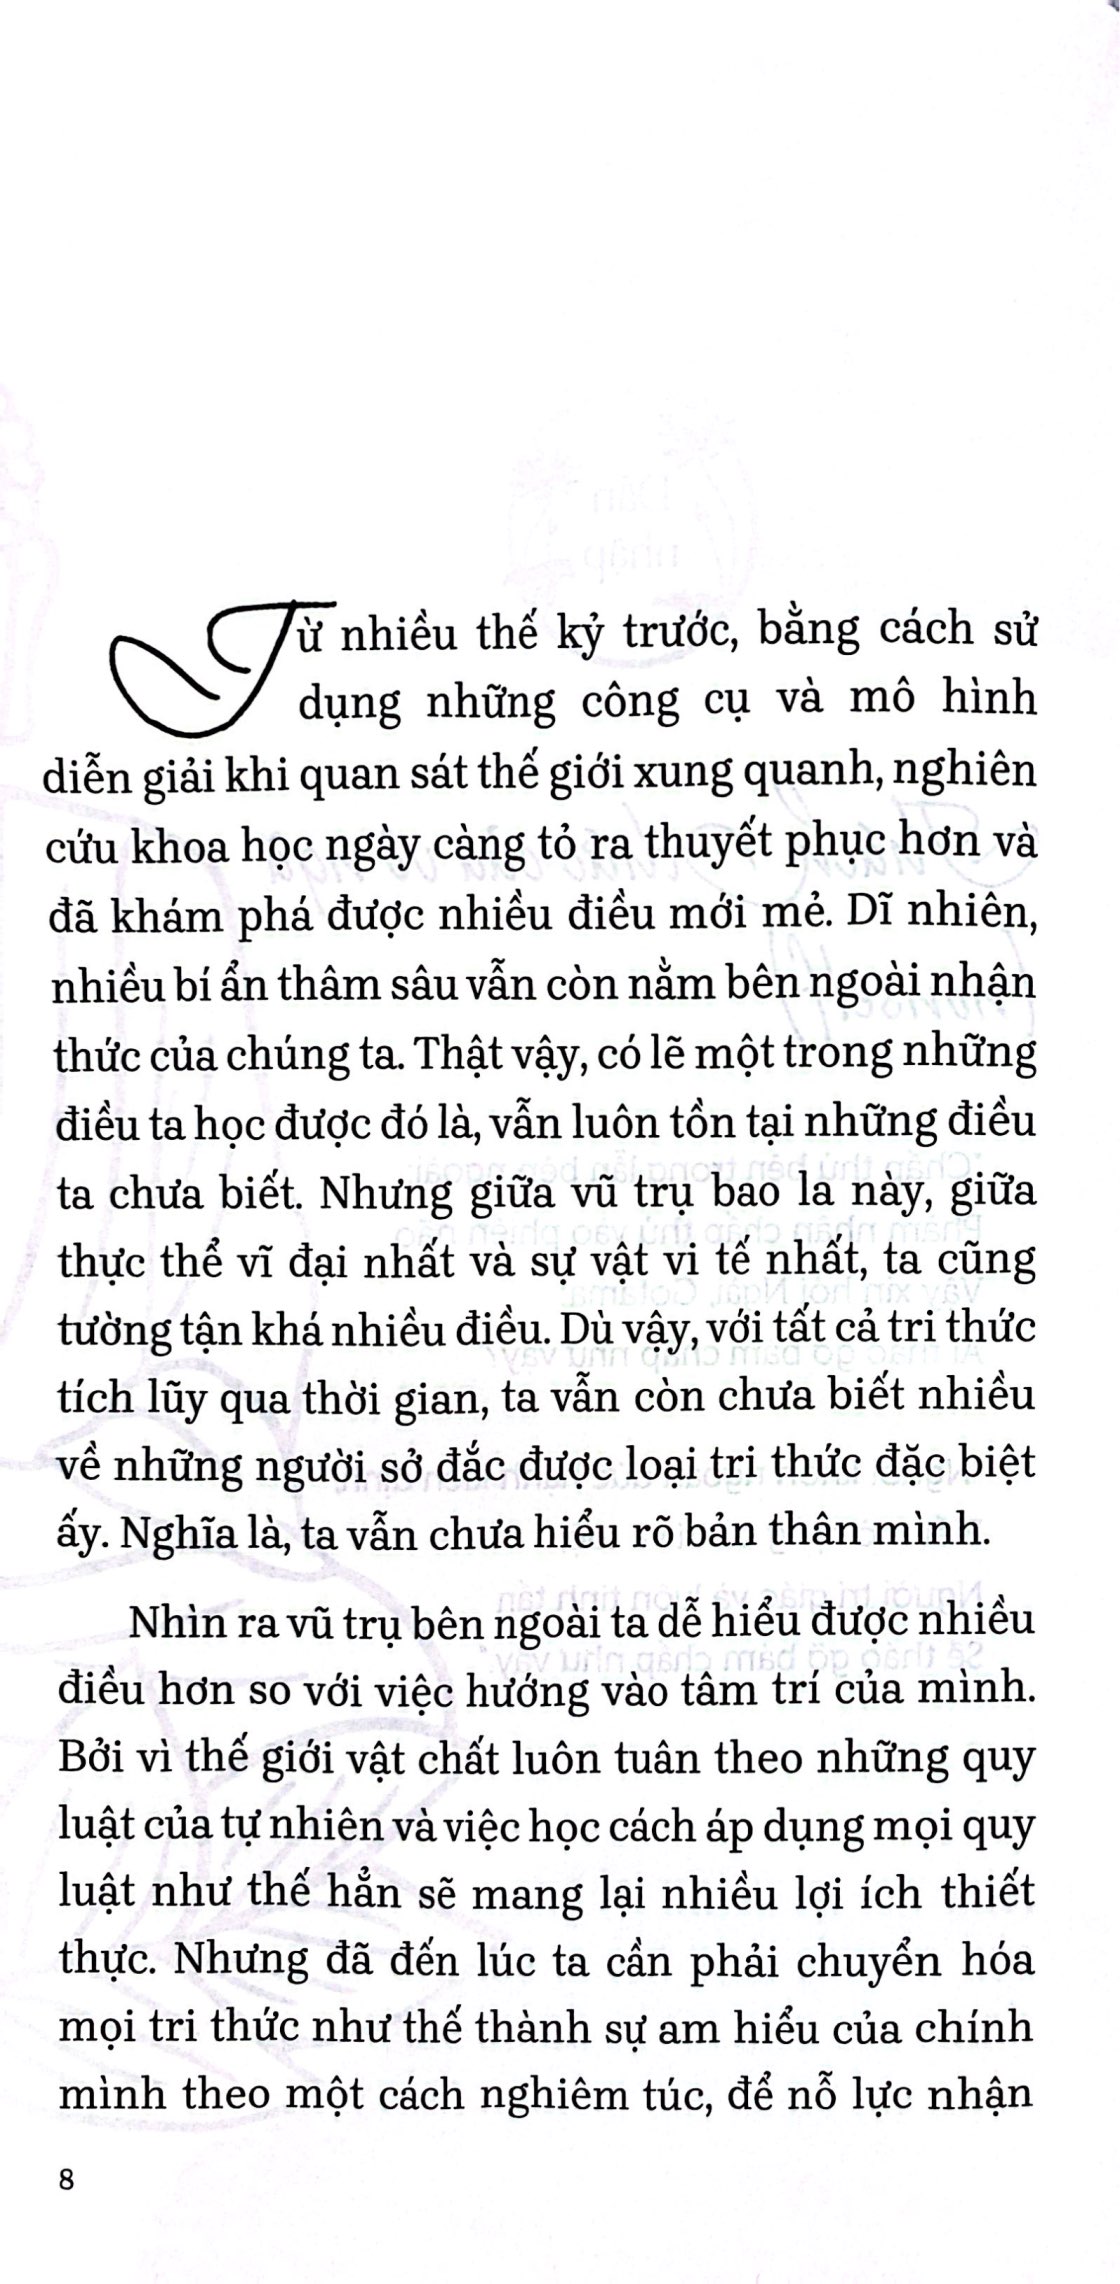 Từ nhiều thế kỷ trước, bằng cách sử
dụng những công cụ và mô hình
diễn giải khi quan sát thế giới xung quanh, nghiên
cứu khoa học ngày càng tỏ ra thuyết phục hơn và
đã khám phá được nhiều điều mới mẻ. Dĩ nhiên,
nhiều bí ẩn thâm sâu vẫn còn nằm bên ngoài nhận
thức của chúng ta. Thật vậy, có lẽ một trong những
điều ta học được đó là, vẫn luôn tồn tại những điều
ta chưa biết. Nhưng giữa vũ trụ bao la này, giữa
thực thể vĩ đại nhất và sự vật vi tế nhất, ta cũng
tường tận khá nhiều điều. Dù vậy, với tất cả tri thức
tích lũy qua thời gian, ta vẫn còn chưa biết nhiều
về những người sở đắc được loại tri thức đặc biệt
ấy. Nghĩa là, ta vẫn chưa hiểu rõ bản thân mình.
Nhìn ra vũ trụ bên ngoài ta dễ hiểu được nhiều
điều hơn so với việc hướng vào tâm trí của mình.
Bởi vì thế giới vật chất luôn tuân theo những quy
luật của tự nhiên và việc học cách áp dụng mọi quy
luật như thế hẳn sẽ mang lại nhiều lợi ích thiết
thực. Nhưng đã đến lúc ta cần phải chuyển hóa
mọi tri thức như thế thành sự am hiểu của chính
mình theo một cách nghiêm túc, để nỗ lực nhận
8